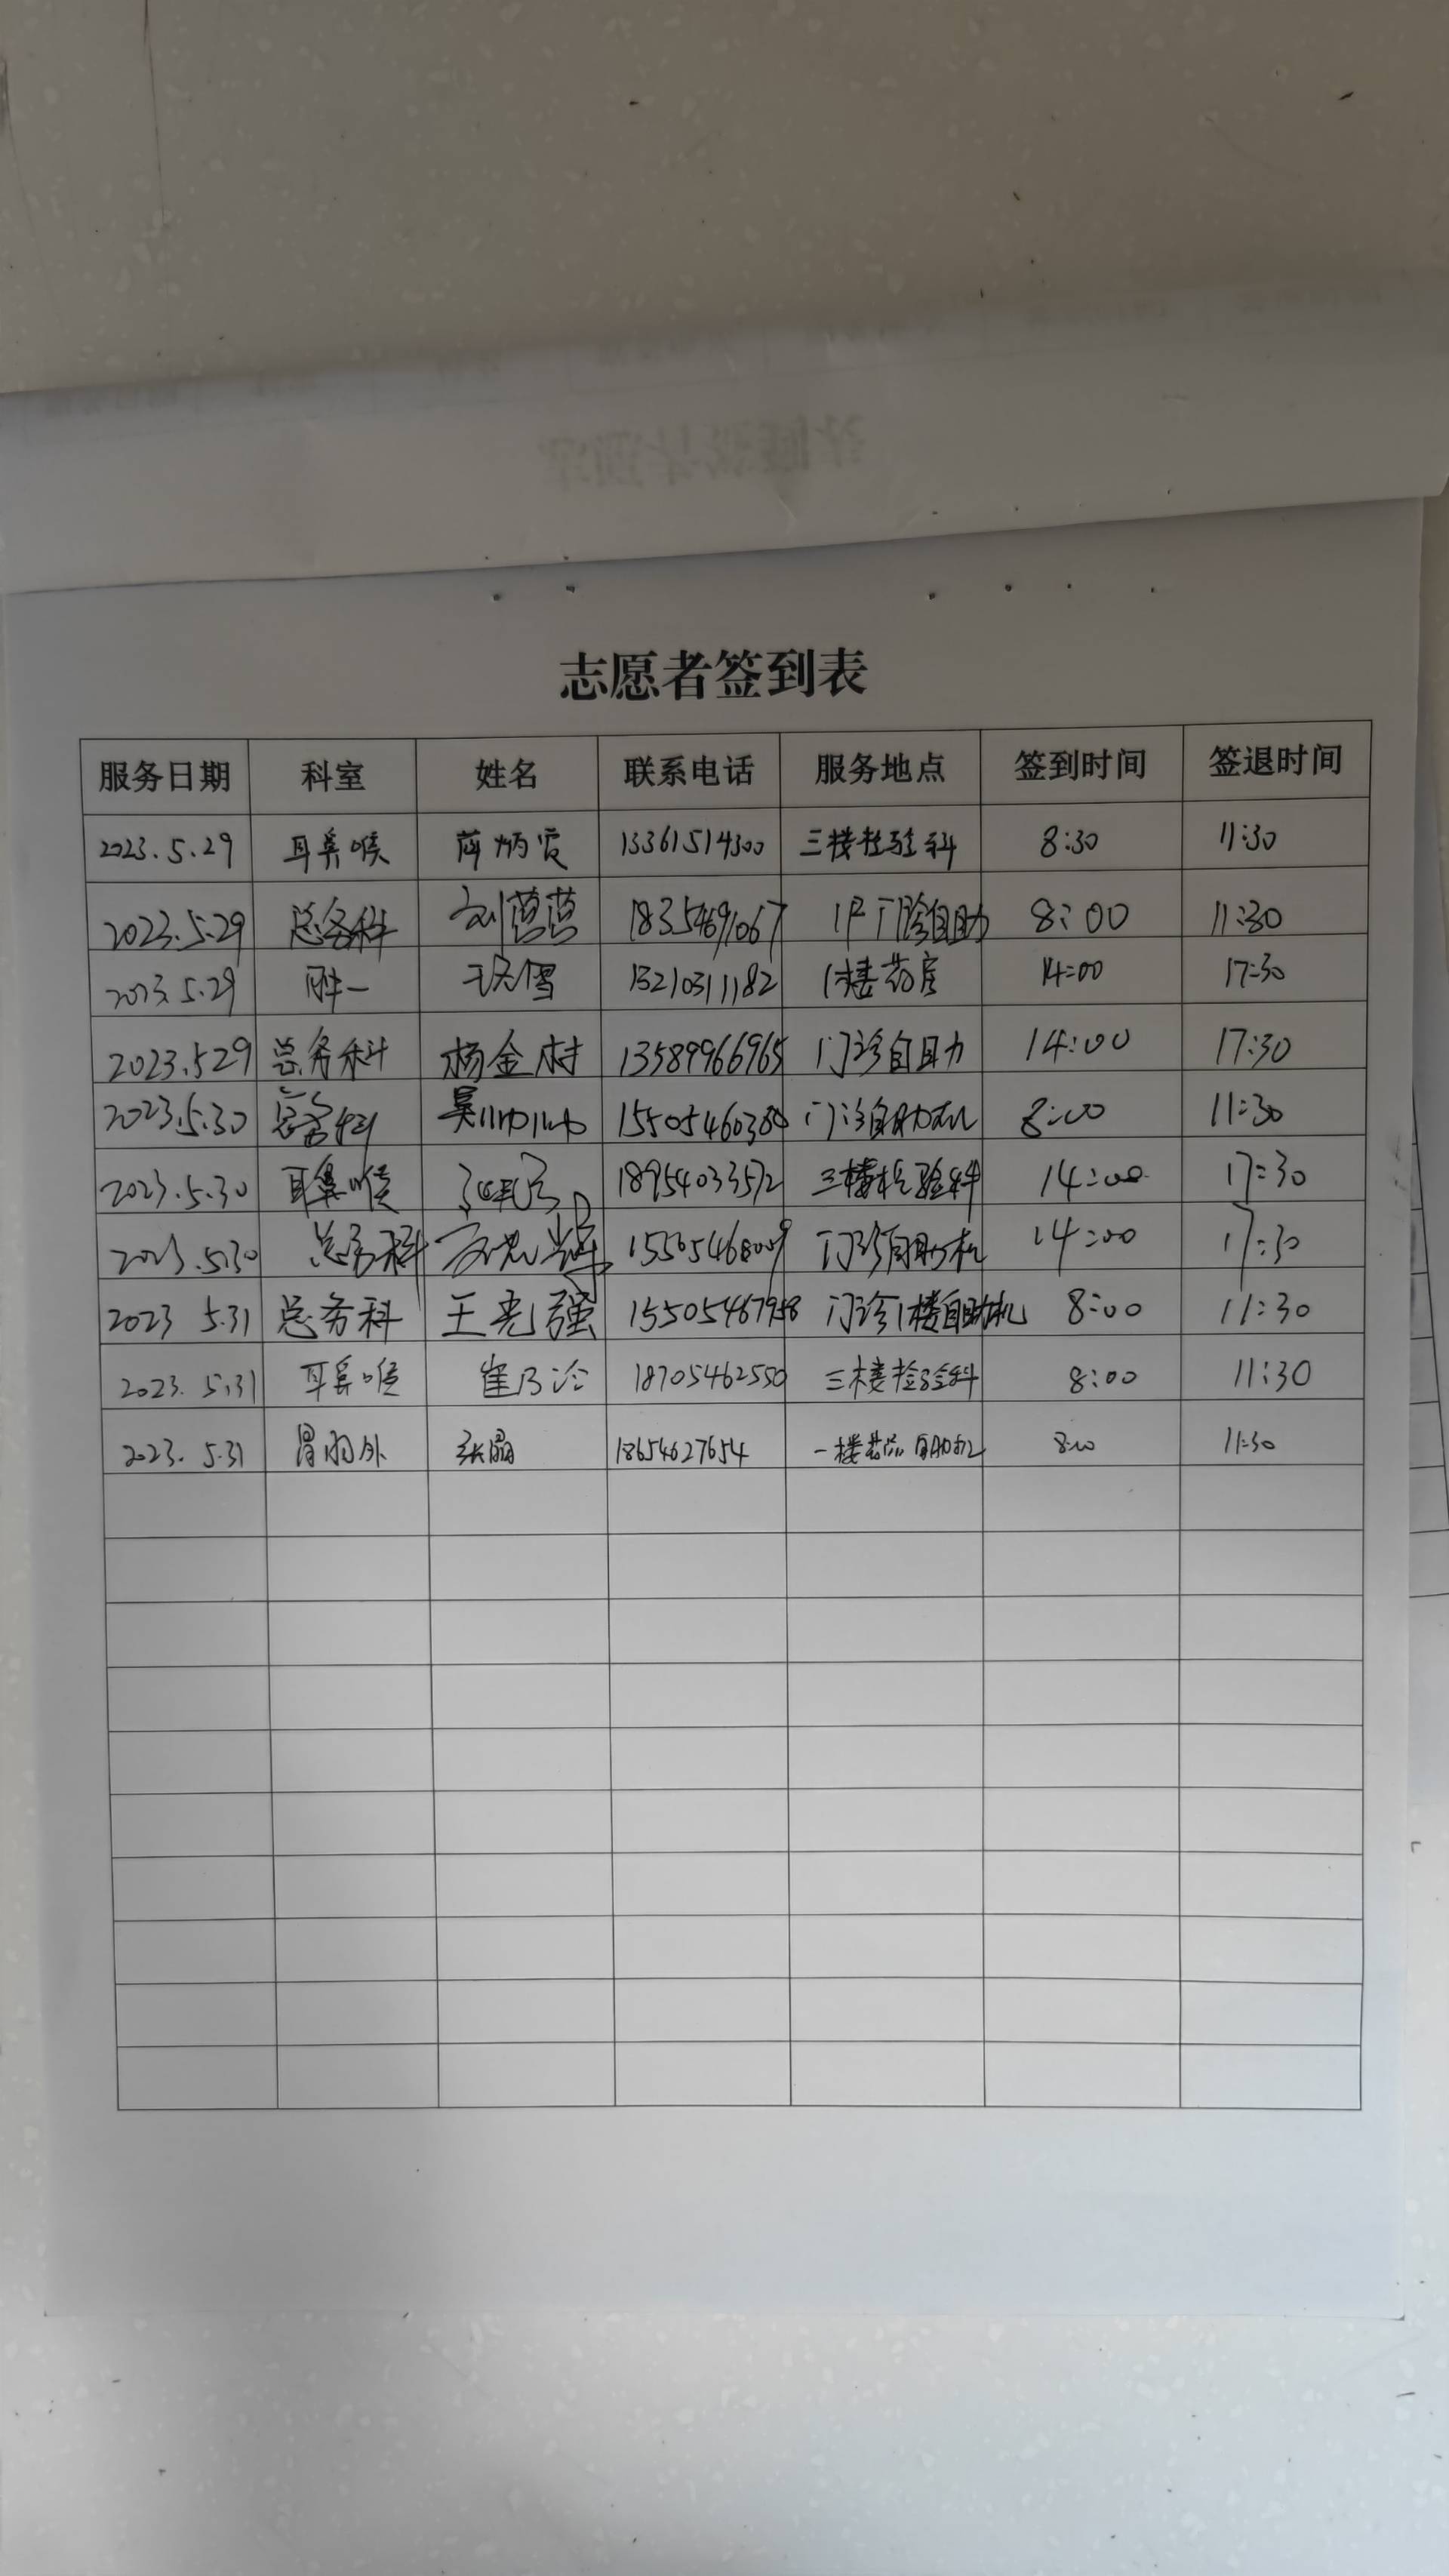 志愿者签到表
服务日期 科室 姓名 联系电话 服务地点 签到时间 签退时间
2023.5.29 耳鼻喉 13361514300 三楼检验科 8:30 11:30
2023.5.29 总务科 刘莹莹 18354691067 1F门诊自助 8:00 11:30
2023.5.29 15210311182 1楼药房 14:00 17:30
2023.529 总务科 杨金树 13589966965 门诊自助 14:00 17:30
2023.5.30 总务科 门诊自助机 8:00 11:30
2023.5.30 耳鼻喉 18954033572 三楼检验科 14:00 17:30
2023.5.30 总务科 门诊自助机 14:00 17:30
2023 5.31 总务科 王光强 15505467958 门诊1楼自助机 8:00 11:30
2023. 5.31 耳鼻喉 崔乃 18705462550 三楼检验科 8:00 11:30
2023. 5.31 张晶 18654627654 一楼 自助机 8:00 11:30